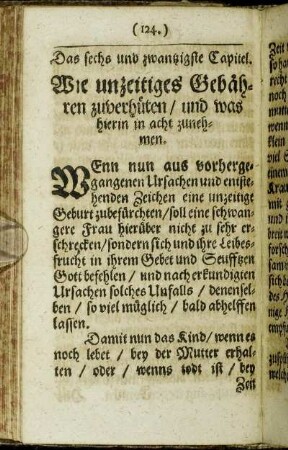 (124.)
Das sechs und zwantzigste Capitel.
Wie unzeitiges Gebäh-
ren zuverhüten / und was
hierin in acht zuneh-
men.
WEnn nun aus vorherge-
gangenen Ursachen und entste-
henden Zeichen eine unzeitige
Geburt zubefürchten / soll eine schwan-
gere Frau hierüber nicht zu sehr er-
schrecken / sondern sich und ihre Leibes-
frucht in ihrem Gebet und Seufftzen
Gott befehlen / und nach erkundigten
Ursachen solches Unfalls / denensel-
ben / so viel müglich / bald abhelffen
lassen.
Damit nun das Kind / wenn es
noch lebet / bey der Mutter erhal-
ten / oder / wenns todt ist / bey
Zeit